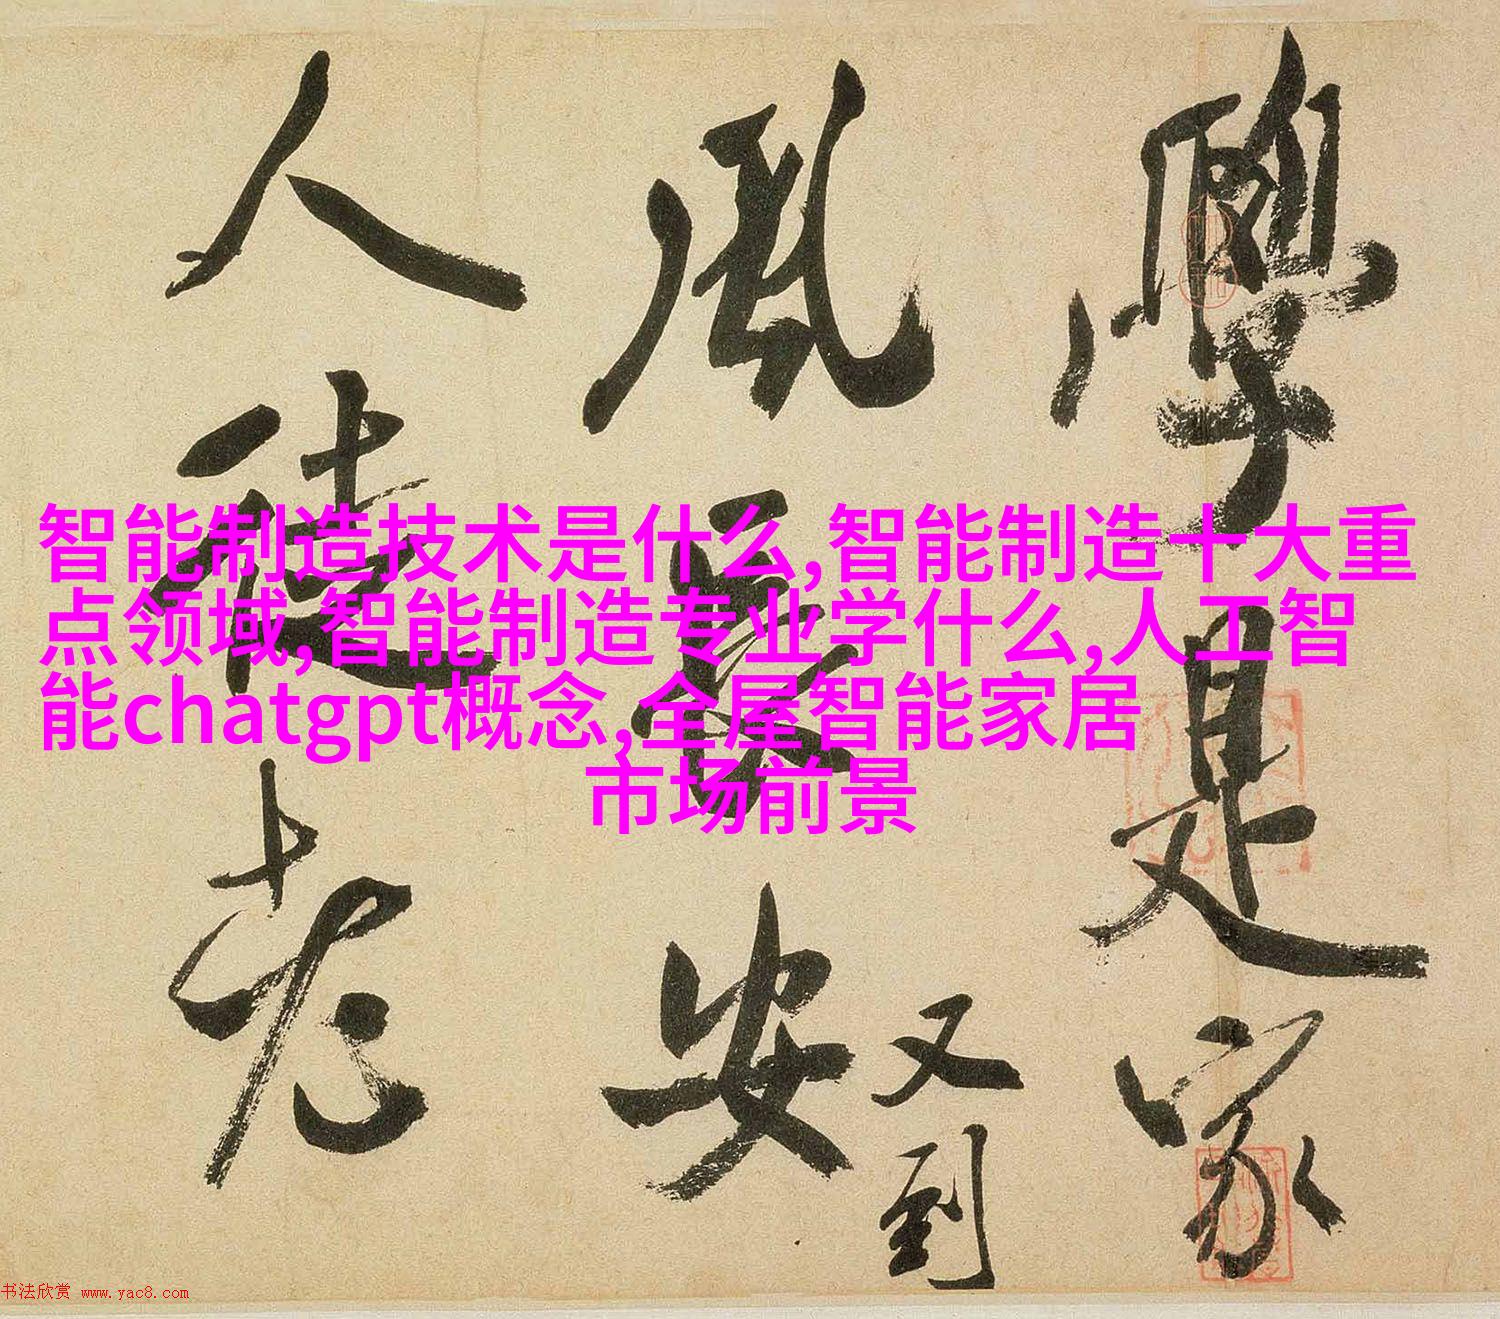 學是家
風長安
又到
人徒老
智能制造技术是什么,智能制造十大重
点领域,智能制造专业学什么,人工智
能chatgpt概念,全屋智能家居
市场前景
书法欣赏 www.yac8.com